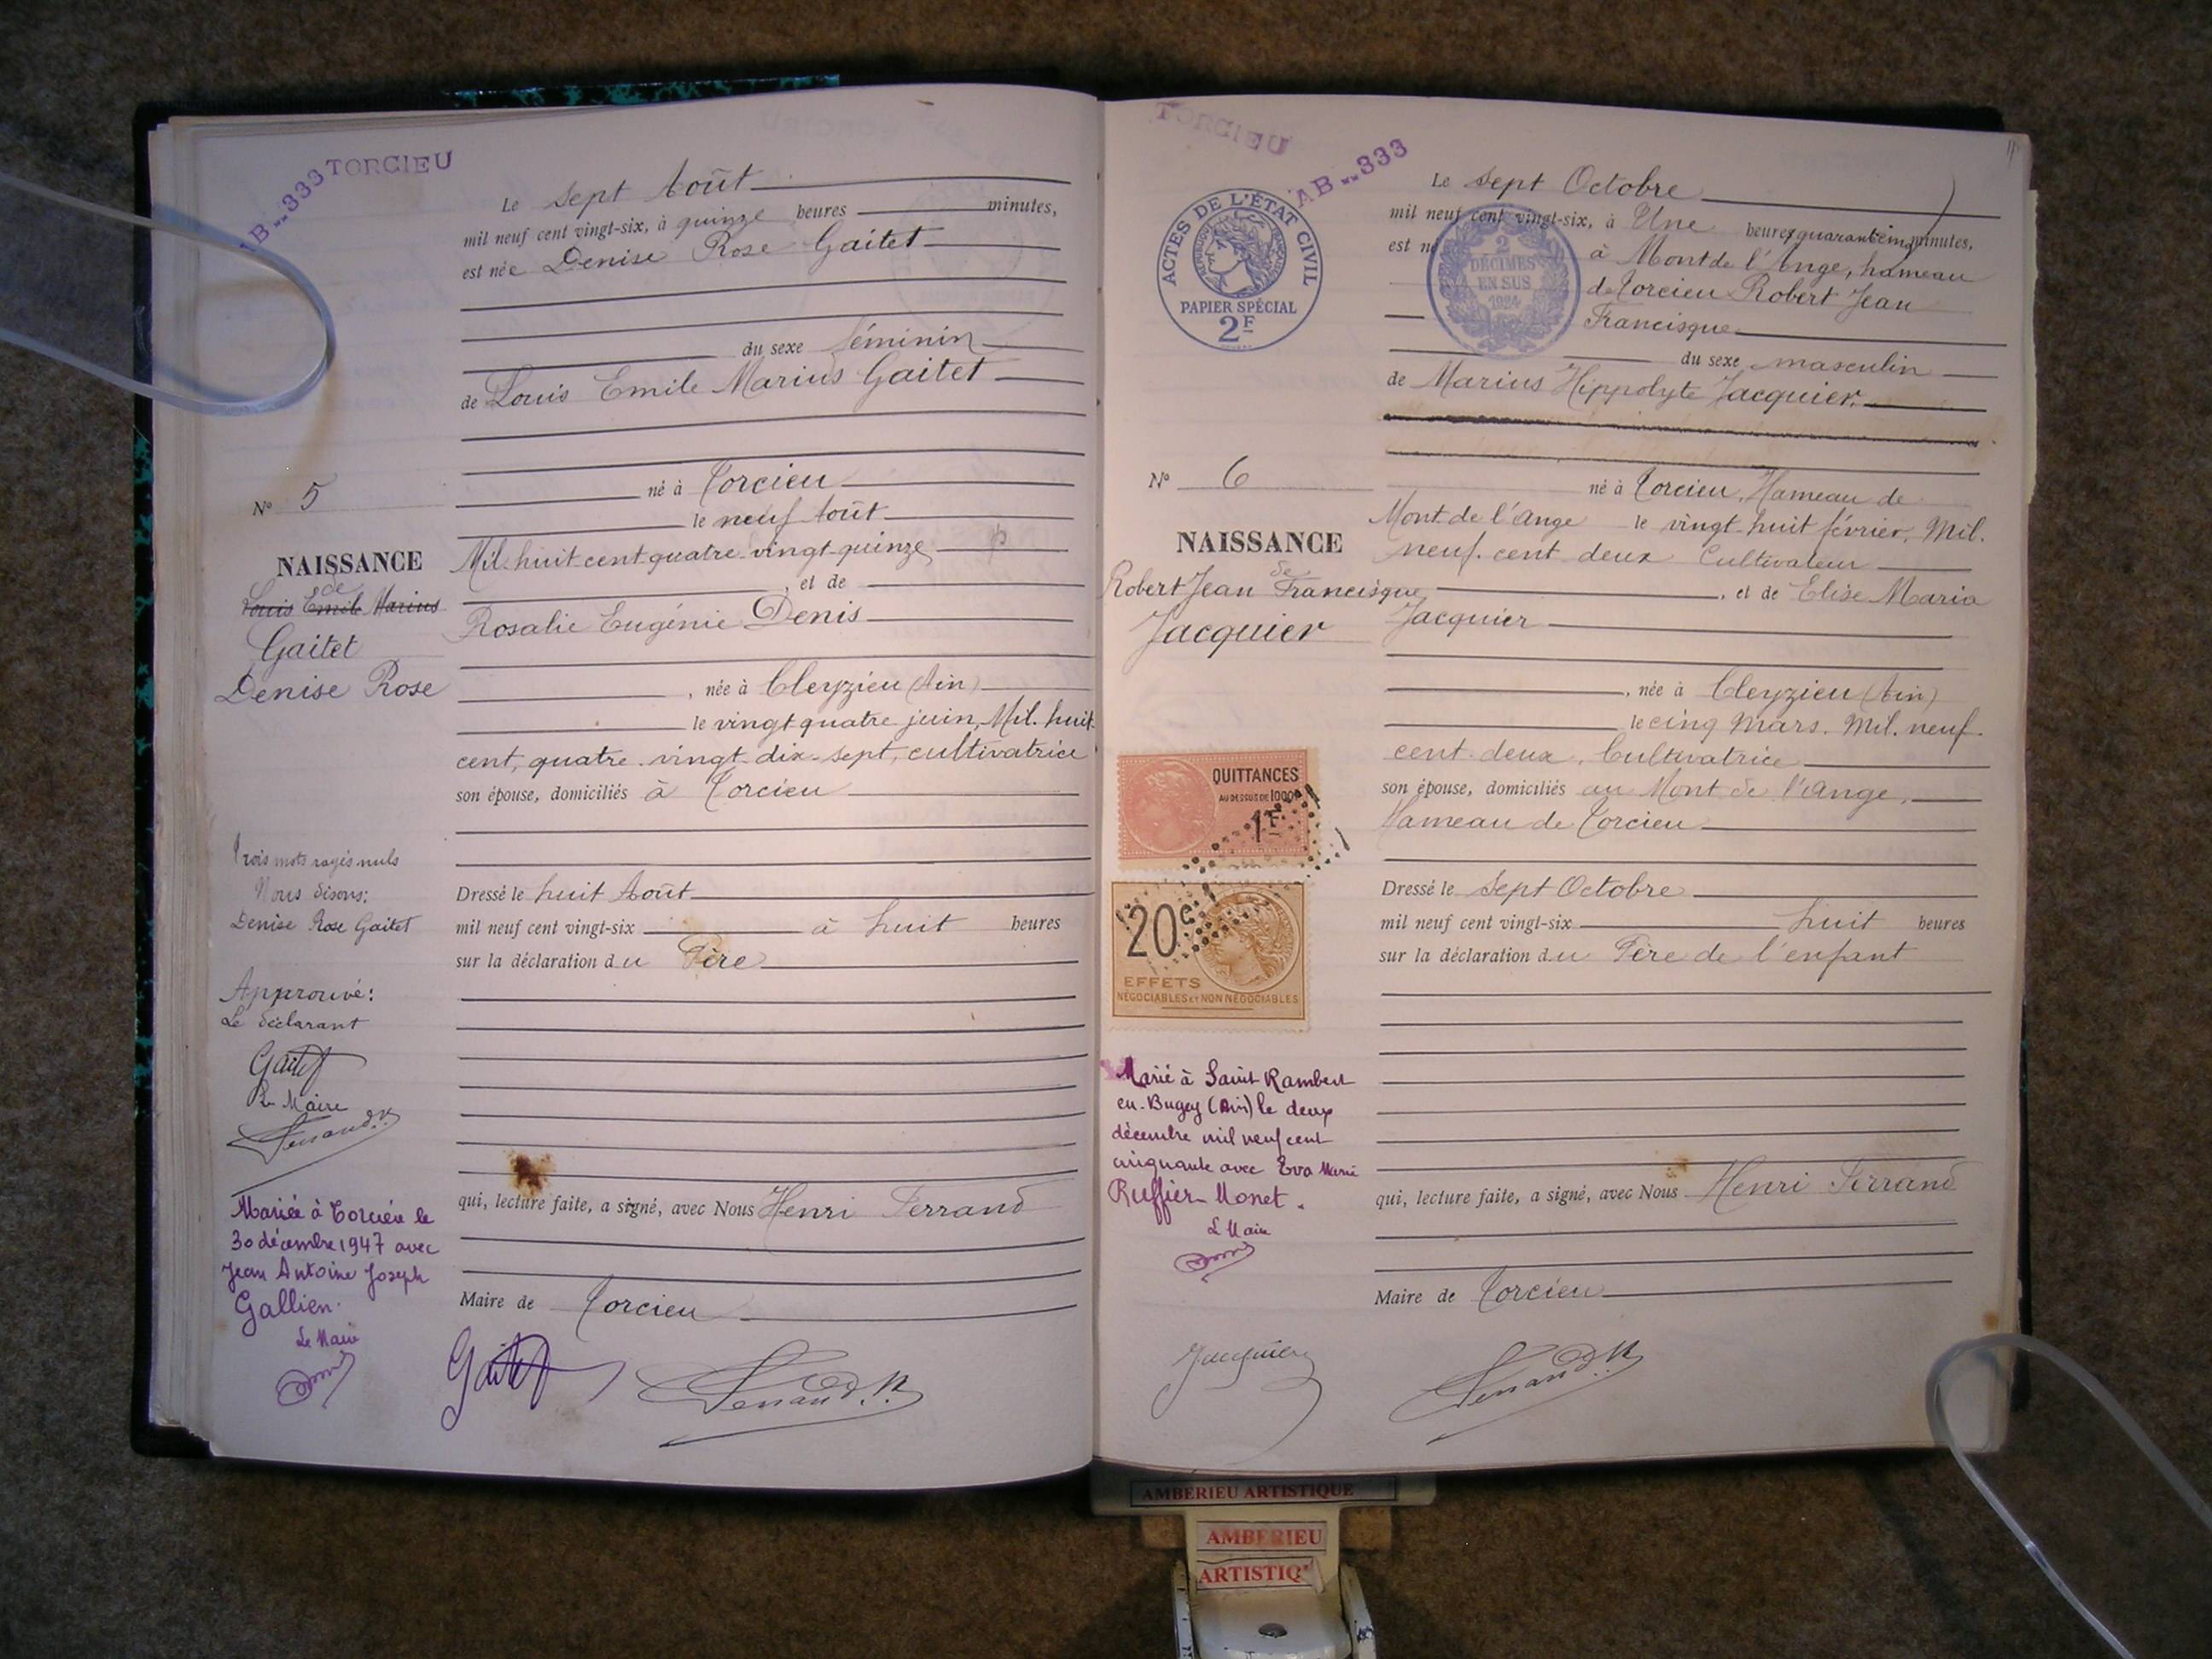 AB..333 TORCIEU
Le sept Août
mil neuf cent vingt-six, à quinze heures minutes,
est née Denise Rose Gaitet
du sexe féminin
de Louis Emile Marius Gaitet
né à Torcieu
le neuf Août
Mil-huit cent quatre-vingt-quinze
et de
Rosalie Eugénie Denis
, née à Cleyzieu (Ain)
le vingt quatre juin, Mil. huit
cent, quatre-vingt-dix-sept, cultivatrice
son épouse, domiciliés à Torcieu
Dressé le huit Août
mil neuf cent vingt-six à huit heures
sur la déclaration du Père
qui, lecture faite, a signé, avec Nous Henri Ferrand
Maire de Torcieu
Gaitet Ferrand.H.
N° 5
NAISSANCE
de
Louis Emile Marius
Gaitet
Denise Rose
Trois mots rayés nuls
Nous disons:
Denise Rose Gaitet
Approuvé:
Le déclarant
Gaitet
Le Maire
Ferrand.H.
Mariée à Torcieu le
30 décembre 1947 avec
Jean Antoine Joseph
Gallien.
Le Maire
TORCIEU
AB..333
ACTES DE L'ÉTAT CIVIL
PAPIER SPÉCIAL
2F
2
DÉCIMES
EN SUS
1924
Le sept Octobre
mil neuf cent vingt-six, à Une heures quarante cinq minutes,
est né à Mont de l'Ange, hameau
de Torcieu Robert Jean
Francisque
du sexe masculin
de Marius Hippolyte Jacquier.
né à Torcieu, Hameau de
Mont de l'Ange le vingt-huit février, Mil.
neuf. cent deux Cultivateur
, et de Elise Maria
Jacquier
, née à Cleyzieu (Ain)
le cinq Mars. Mil. neuf.
cent. deux, Cultivatrice
son épouse, domiciliés au Mont de l'Ange,
Hameau de Torcieu
Dressé le Sept Octobre
mil neuf cent vingt-six huit heures
sur la déclaration du Père de l'enfant
qui, lecture faite, a signé, avec Nous Henri Ferrand
Maire de Torcieu
Jacquier Ferrand.H.
N° 6
NAISSANCE
de
Robert Jean Francisque
Jacquier
QUITTANCES
AU DESSUS DE 1000F
1F
20c
EFFETS
NÉGOCIABLES ET NON NÉGOCIABLES
Marié à Saint Rambert
en-Bugey (Ain) le deux
décembre mil neuf cent
cinquante avec Eva Marie
Ruffier-Monet.
Le Maire
AMBERIEU ARTISTIQUE
AMBERIEU
ARTISTIQ